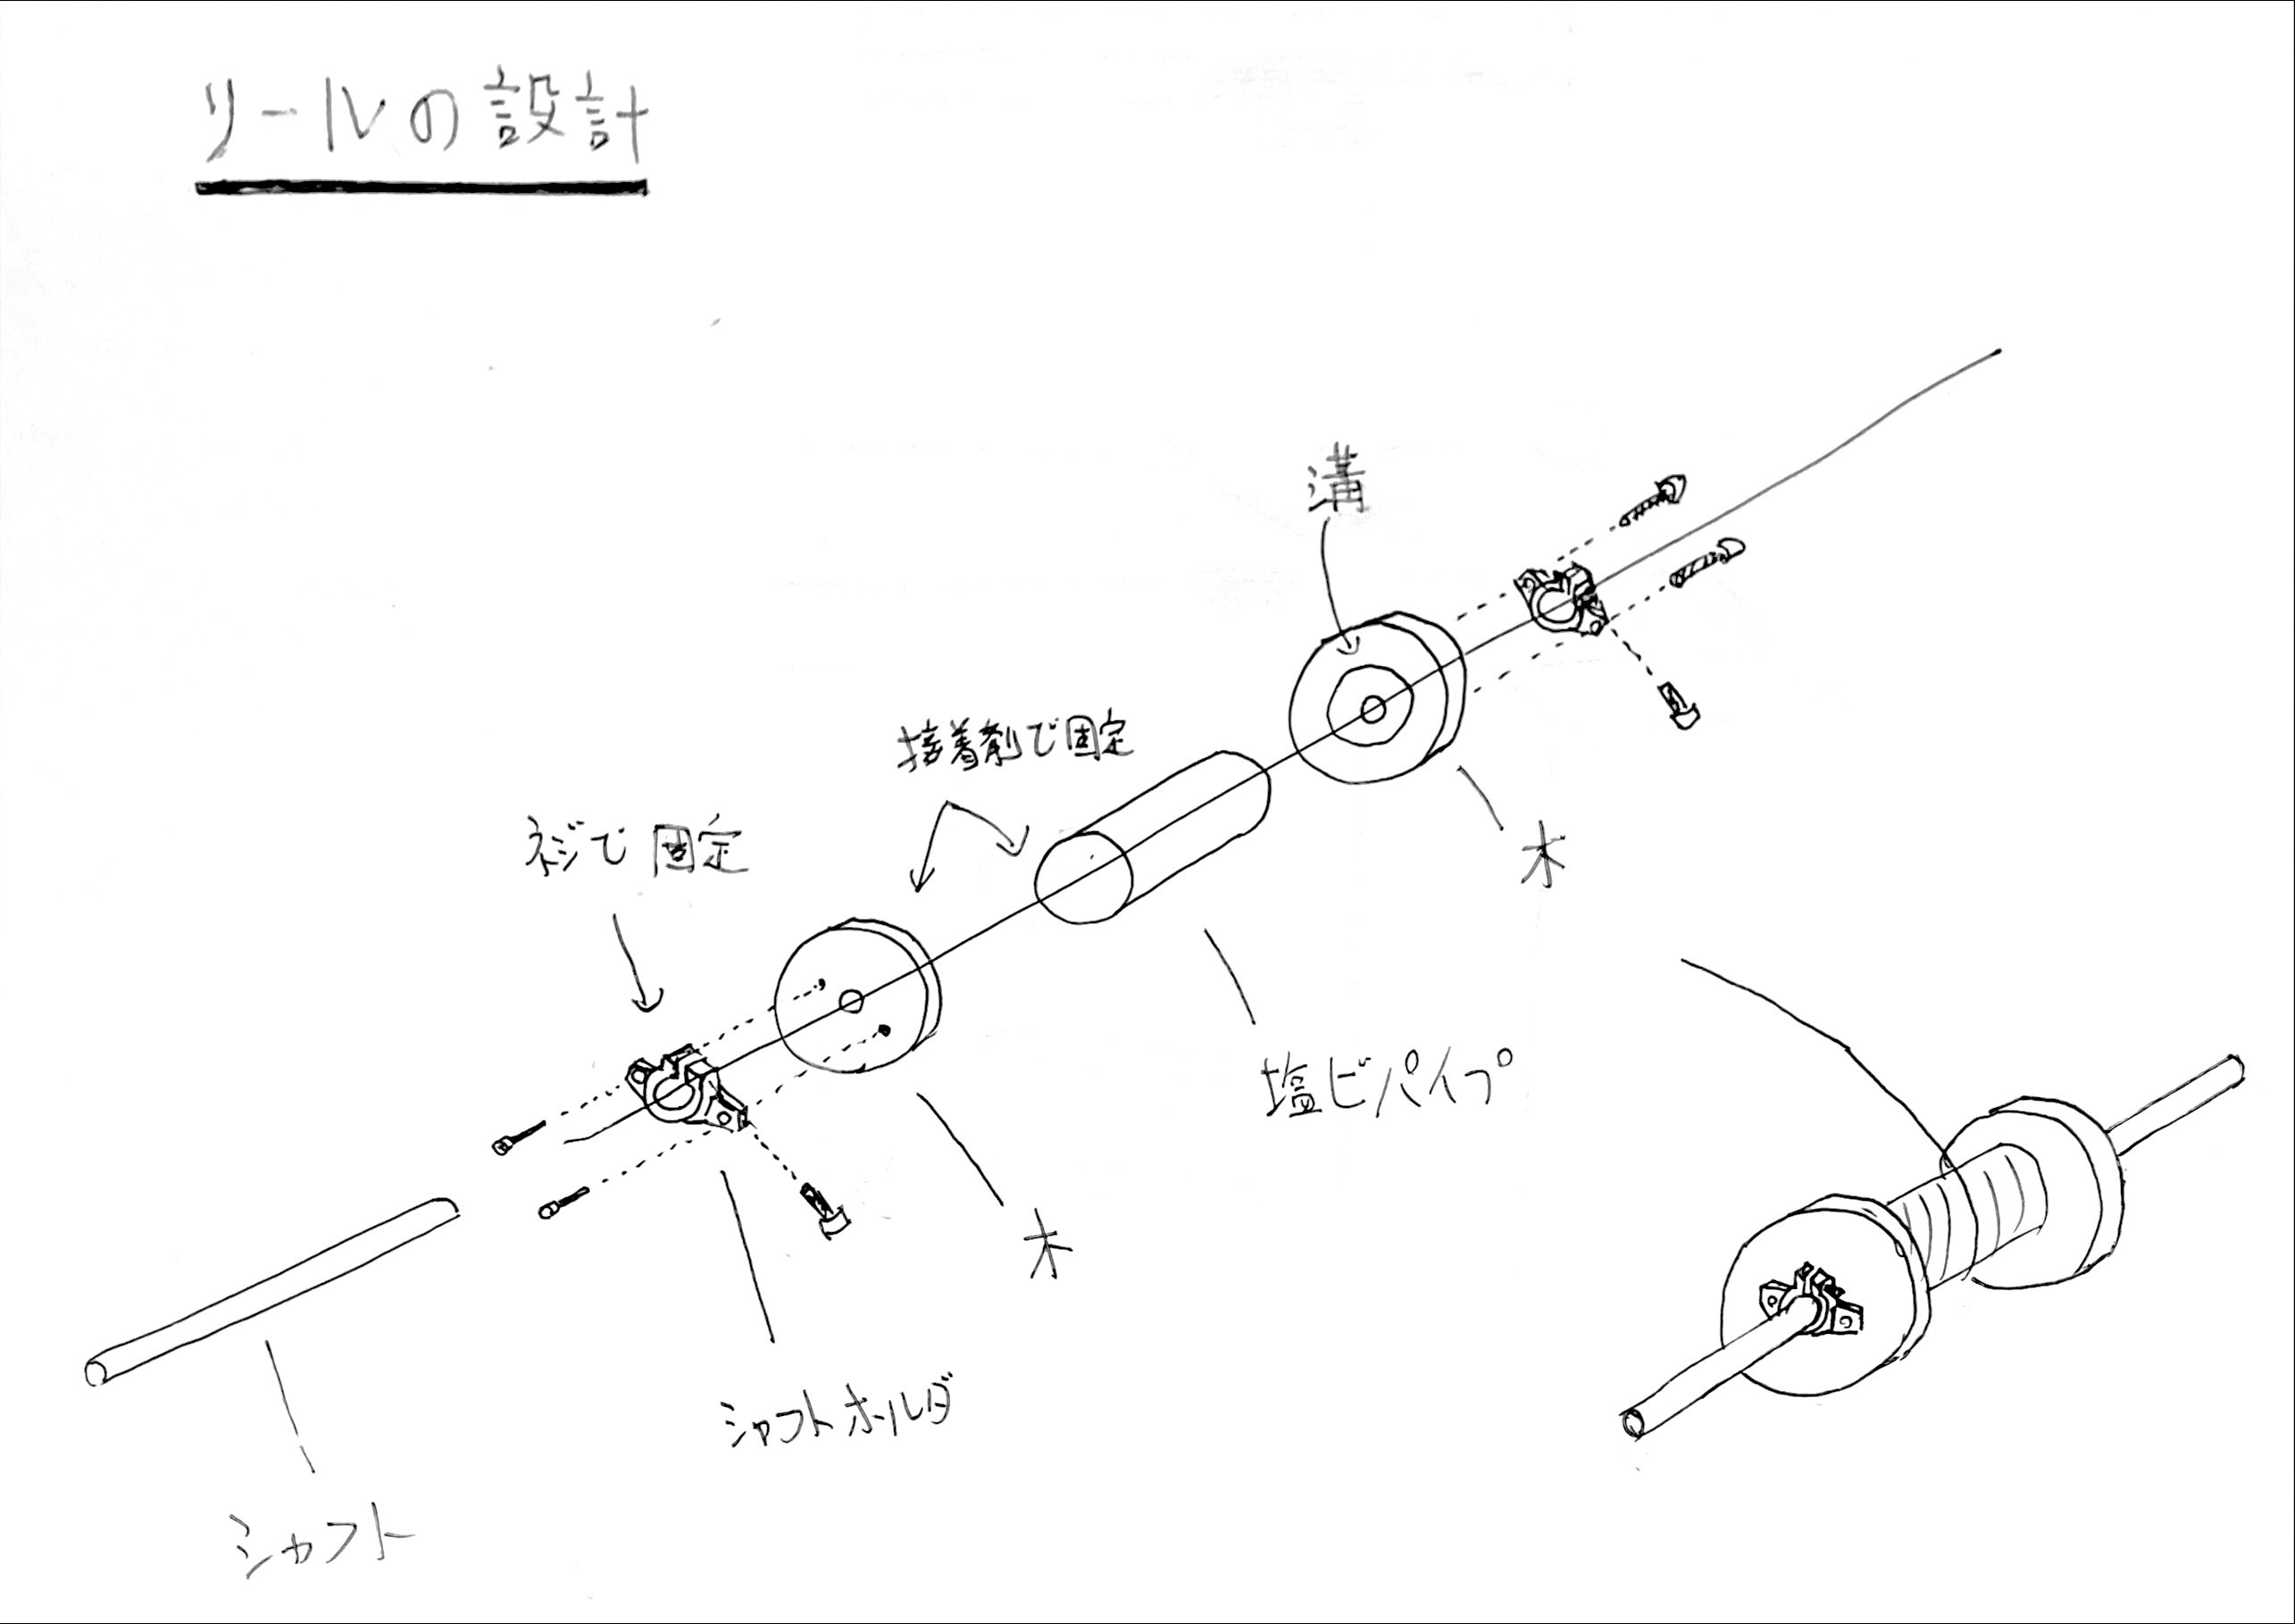 リールの設計
溝
接着剤で固定
ネジで固定
木
塩ビパイプ
木
シャフトホルダ
シャフト